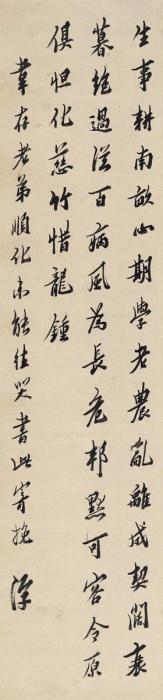 生事耕南畝心期學老農亂離成契闊衰
暮絕過從百病風為長危邦黙可容令原
俱怛化慈竹惜龍鍾
韋存老弟順化未能往哭書此寄挽 淳